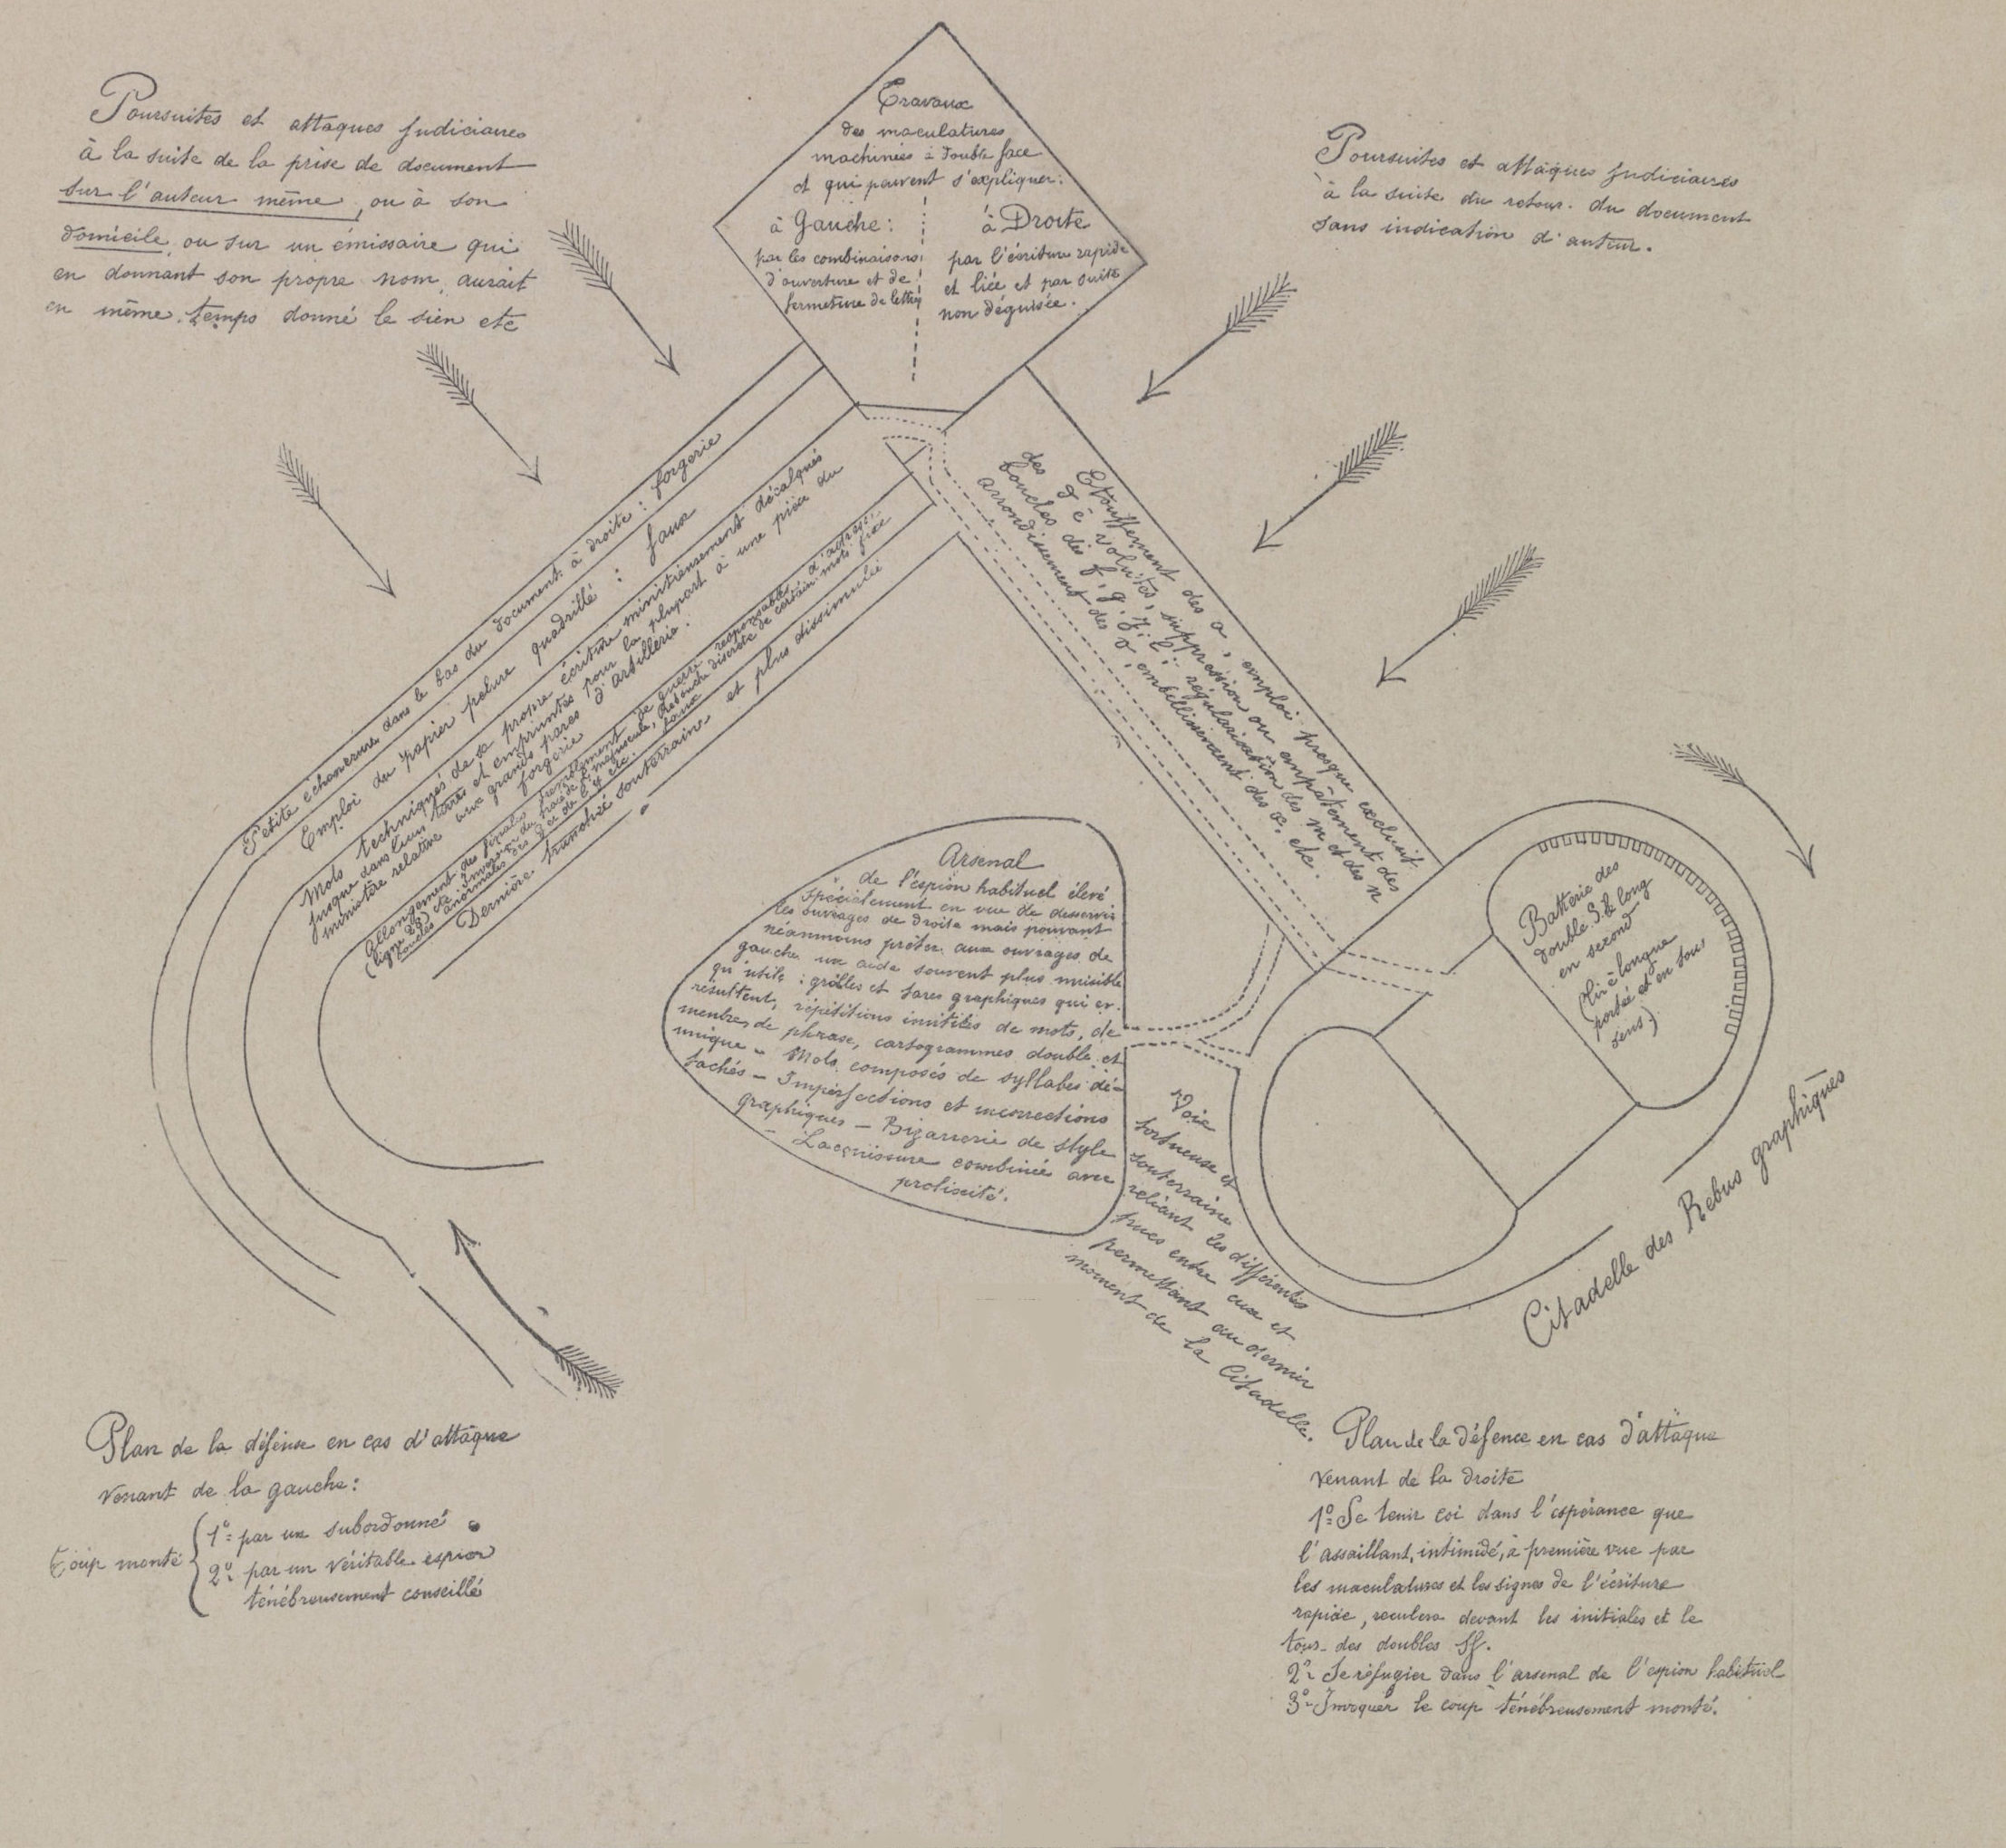 Poursuites et attaques judiciaires
à la suite de la prise de document
sur l'auteur même, ou à son
domicile, ou sur un émissaire qui
en donnant son propre nom, aurait
en même temps donné le sien etc
Travaux
des maculatures
machinées à double face
et qui peuvent s'expliquer:
à Gauche:
par les combinaisons
d'ouverture et de
fermeture de lettres
à Droite
par l'écriture rapide
et liée et par suite
non déguisée.
Poursuites et attaques judiciaires
à la suite du retour du document
sans indication d'auteur.
Petite échancrure dans le bas du document à droite: forgerie
Emploi du papier pelure quadrillé: faux
Mots techniques de sa propre écriture minutieusement décalqués
jusque dans leurs tares et empruntés pour la plupart à une pièce du
ministère relative aux grands parcs d'artillerie.
forgerie
Allongement des finales,
Dernière tranchée souterraine et plus dissimulée
Etouffement des a, emploi presque exclusif
des d à volutes, suppression ou empâtement des
boucles des f, g, j, l; régularisation des m et des n
arrondissement des v, embellissement des x, etc.
Arsenal
de l'espion habituel élevé
spécialement en vue de desservir
les ouvrages de droite mais pouvant
néanmoins prêter aux ouvrages de
gauche un aide souvent plus nuisible
qu'utile: grilles et tares graphiques qui en
résultent, répétitions inutiles de mots, de
membres de phrase, cartogrammes double et
unique - Mots composés de syllabes dé-
tachés - Imperfections et incorrections
graphiques - Bizarrerie de style
- Laconisme combinée avec
prolixité.
Voie
tortueuse et
souterraine
reliant les différentes
entre eux et
permettant au dernier
moment de la Citadelle.
Batterie des
double S. le long
en second
(tir à longue
portée et en tous
sens)
Citadelle des Rebus graphiques
Plan de la défense en cas d'attaque
venant de la gauche:
Coup monté
1º par un subordonné
2º par un véritable espion
ténébreusement conseillé
Plan de la défence en cas d'attaque
venant de la droite
1º Se tenir coi dans l'espérance que
l'assaillant, intimidé, à première vue par
les maculatures et les signes de l'écriture
rapide, reculera devant les initiales et le
tour des doubles SS.
2º Se réfugier dans l'arsenal de l'espion habituel
3º Invoquer le coup ténébreusement monté.